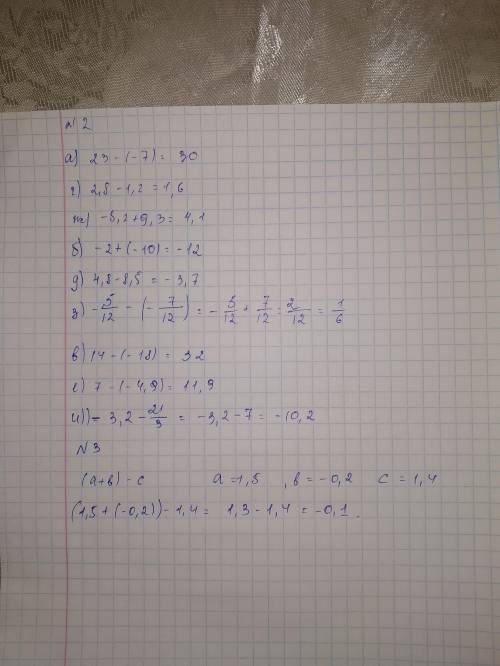 №2
а) 23 - (-7) = 30
г) 2,8 - 1,2 = 1,6
ж) -5,2 + 9,3 = 4,1
б) -2 + (-10) = -12
д) 4,8 - 8,5 = -3,7
з) - 5/12 - (- 7/12) = - 5/12 + 7/12 = 2/12 = 1/6
в) 14 - (-18) = 32
е) 7 - (-4,9) = 11,9
и)) - 3,2 - 21/3 = -3,2 - 7 = -10,2
№3
(а+в) - с а = 1,5 , в = -0,2 с = 1,4
(1,5 + (-0,2)) - 1,4 = 1,3 - 1,4 = -0,1.